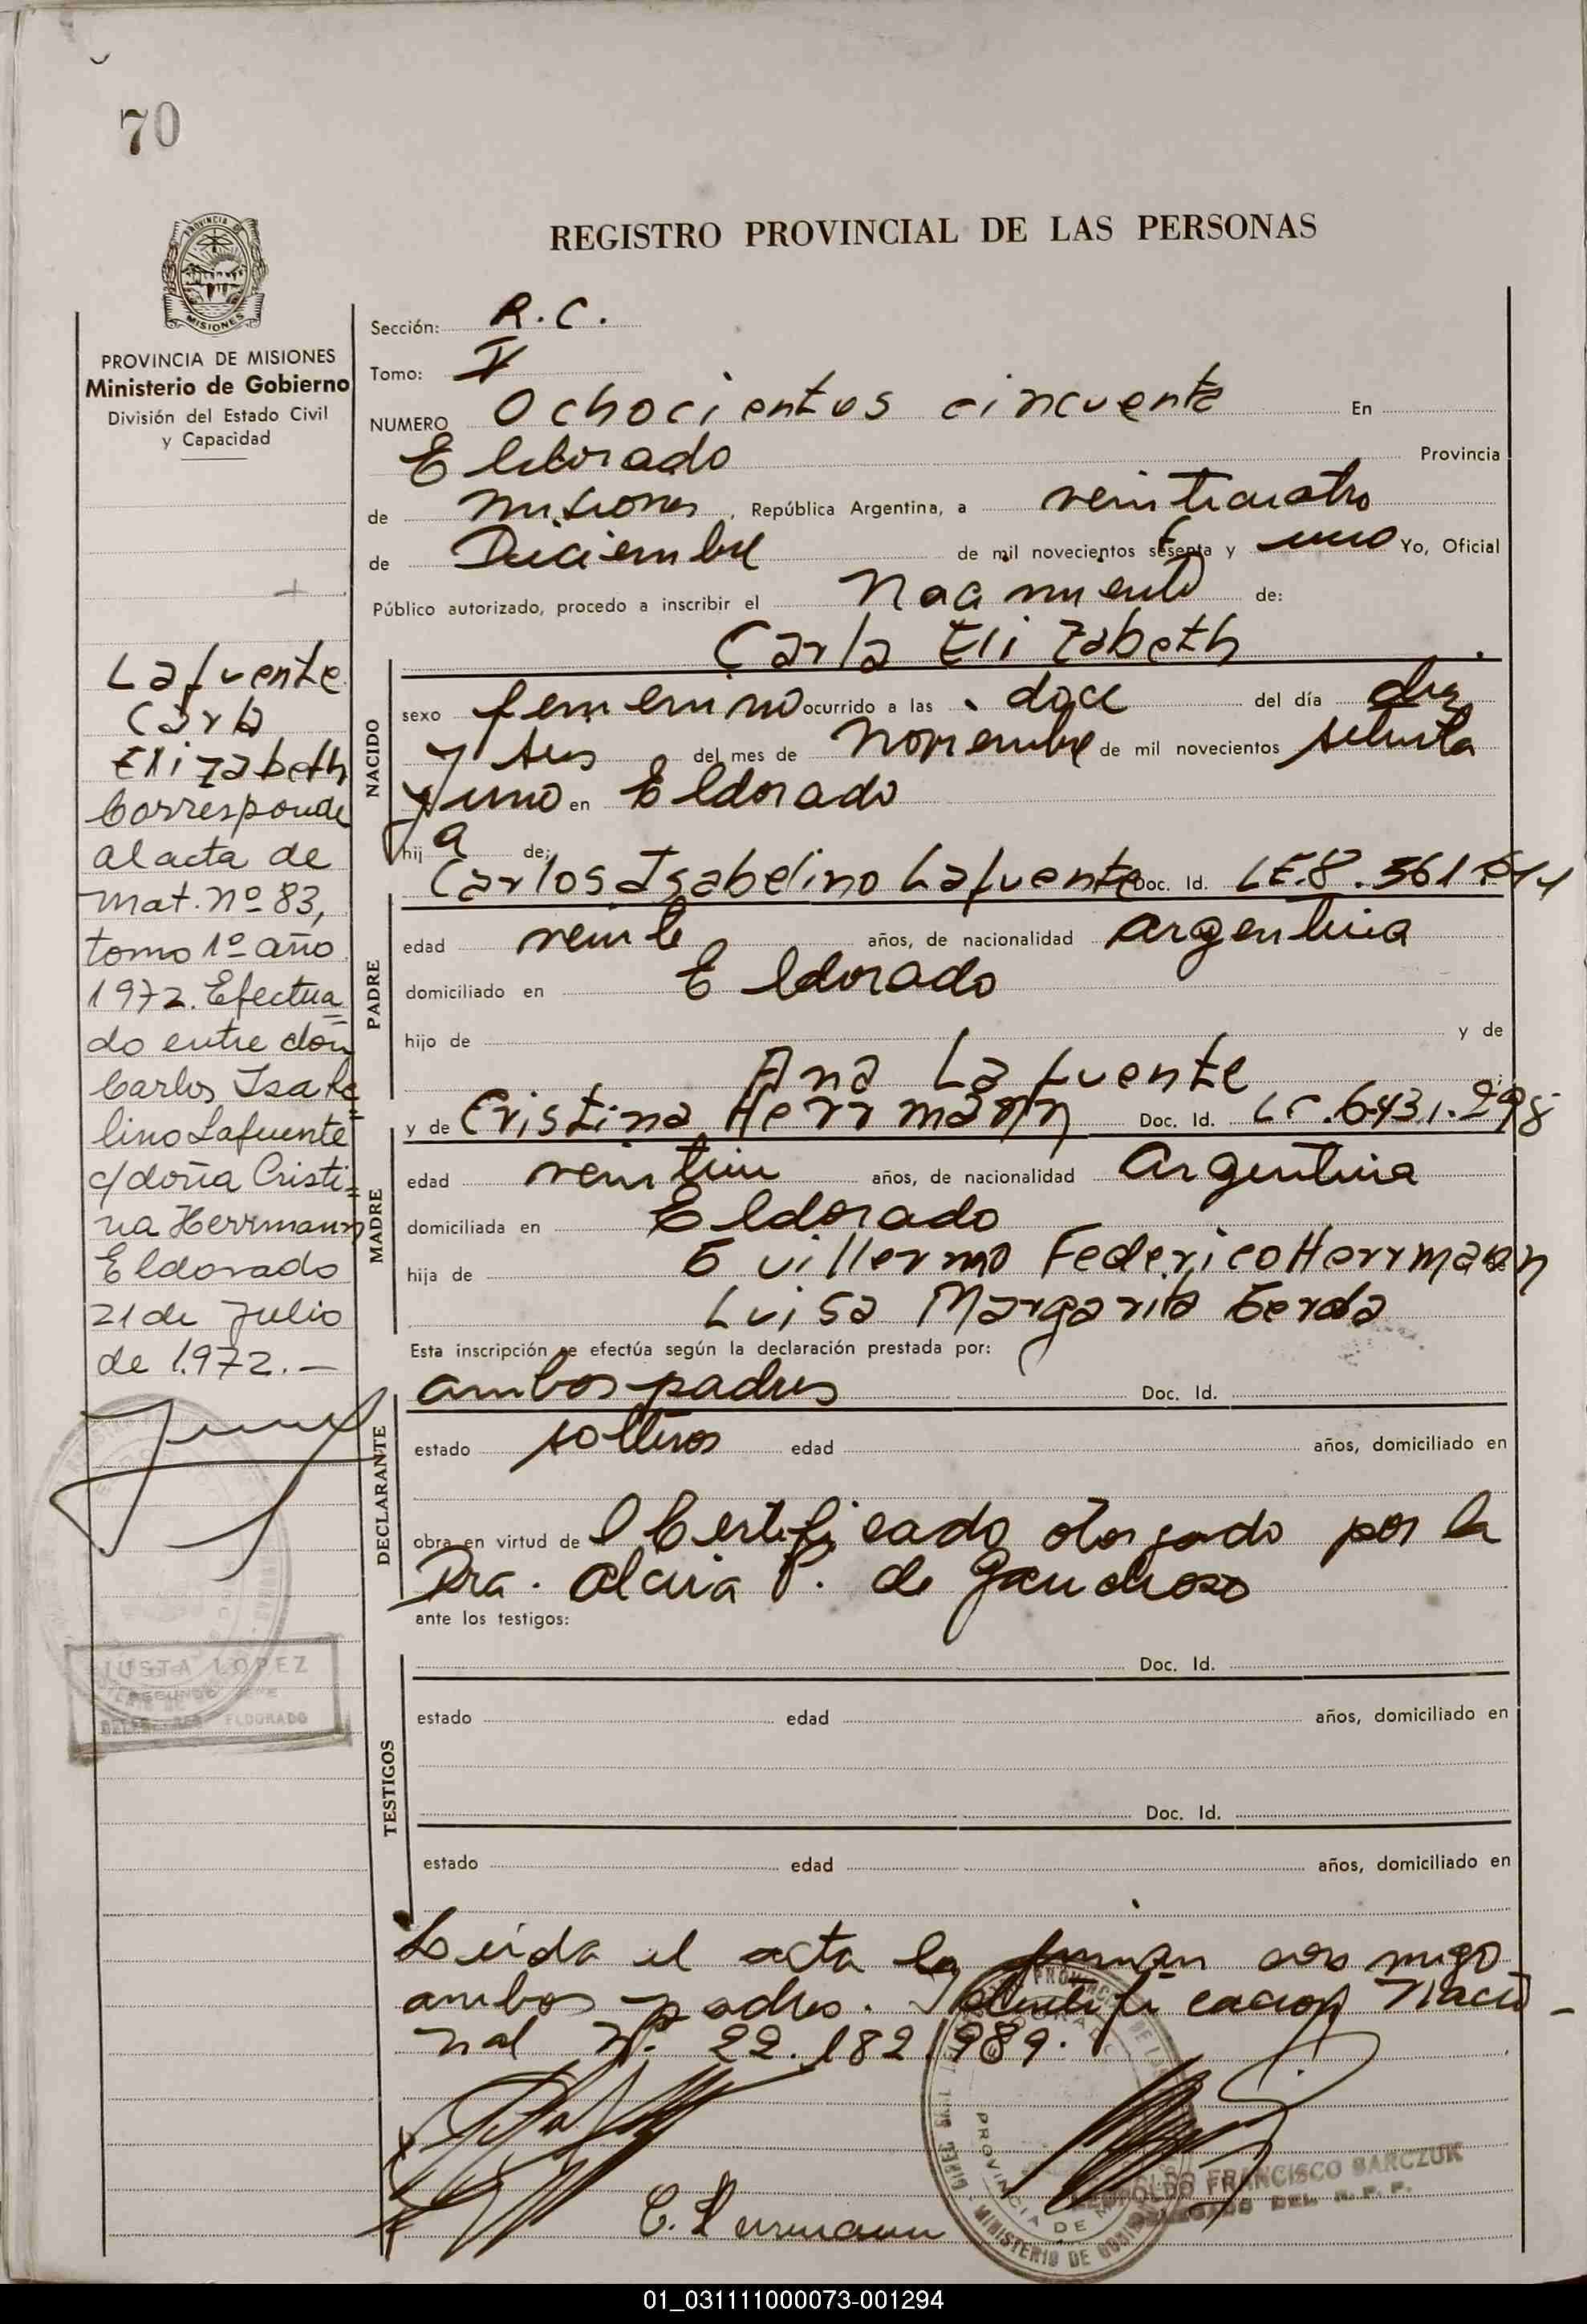 70
REGISTRO PROVINCIAL DE LAS PERSONAS
PROVINCIA DE MISIONES
Ministerio de Gobierno
División del Estado Civil
y Capacidad
Lafuente
Carla
Elizabeth
Corresponde
al acta de
mat. nº 83,
tomo 1º año
1972. Efectua
do entre don
Carlos Isabe
lino Lafuente
c/doña Cristi
na Herrmann
Eldorado
21 de Julio
de 1.972.-
JUSTA LOPEZ
SEGUNDO JEFE
ELDORADO
Sección: R.C.
Tomo: V
NUMERO Ochocientos cincuenta En
Eldorado Provincia
de Misiones, República Argentina, a veinticuatro
de Diciembre de mil novecientos setenta y uno Yo, Oficial
Público autorizado, procedo a inscribir el Nacimiento de:
Carla Elizabeth
NACIDO
sexo femenino ocurrido a las doce del día diez
y seis del mes de Noviembre de mil novecientos setenta
y uno en Eldorado
hija de:
PADRE
Carlos Isabelino Lafuente Doc. Id. LE.8.561.
edad veinte años, de nacionalidad Argentina
domiciliado en Eldorado
hijo de y de
Ana Lafuente
MADRE
y de Cristina Herrmann Doc. Id. LC.6.431.298
edad años, de nacionalidad Argentina
domiciliada en Eldorado
hija de Guillermo Federico Herrmann
Luisa Margarita Gerda
Esta inscripción se efectúa según la declaración prestada por:
DECLARANTE
ambos padres Doc. Id.
estado solteros edad años, domiciliado en
obra en virtud del Certificado otorgado por la
Dra. P. de
ante los testigos:
TESTIGOS
Doc. Id.
estado edad años, domiciliado en
Doc. Id.
estado edad años, domiciliado en
Leída el acta la firman con migo
ambos padres. Identificacion Nacio-
nal Nº. 22.182.989.
C. Herrmann
PROVINCIA DE
MINISTERIO DE
LEOPOLDO FRANCISCO SARCZUK
DELEGADO DEL R.P.P.
01_031111000073-001294